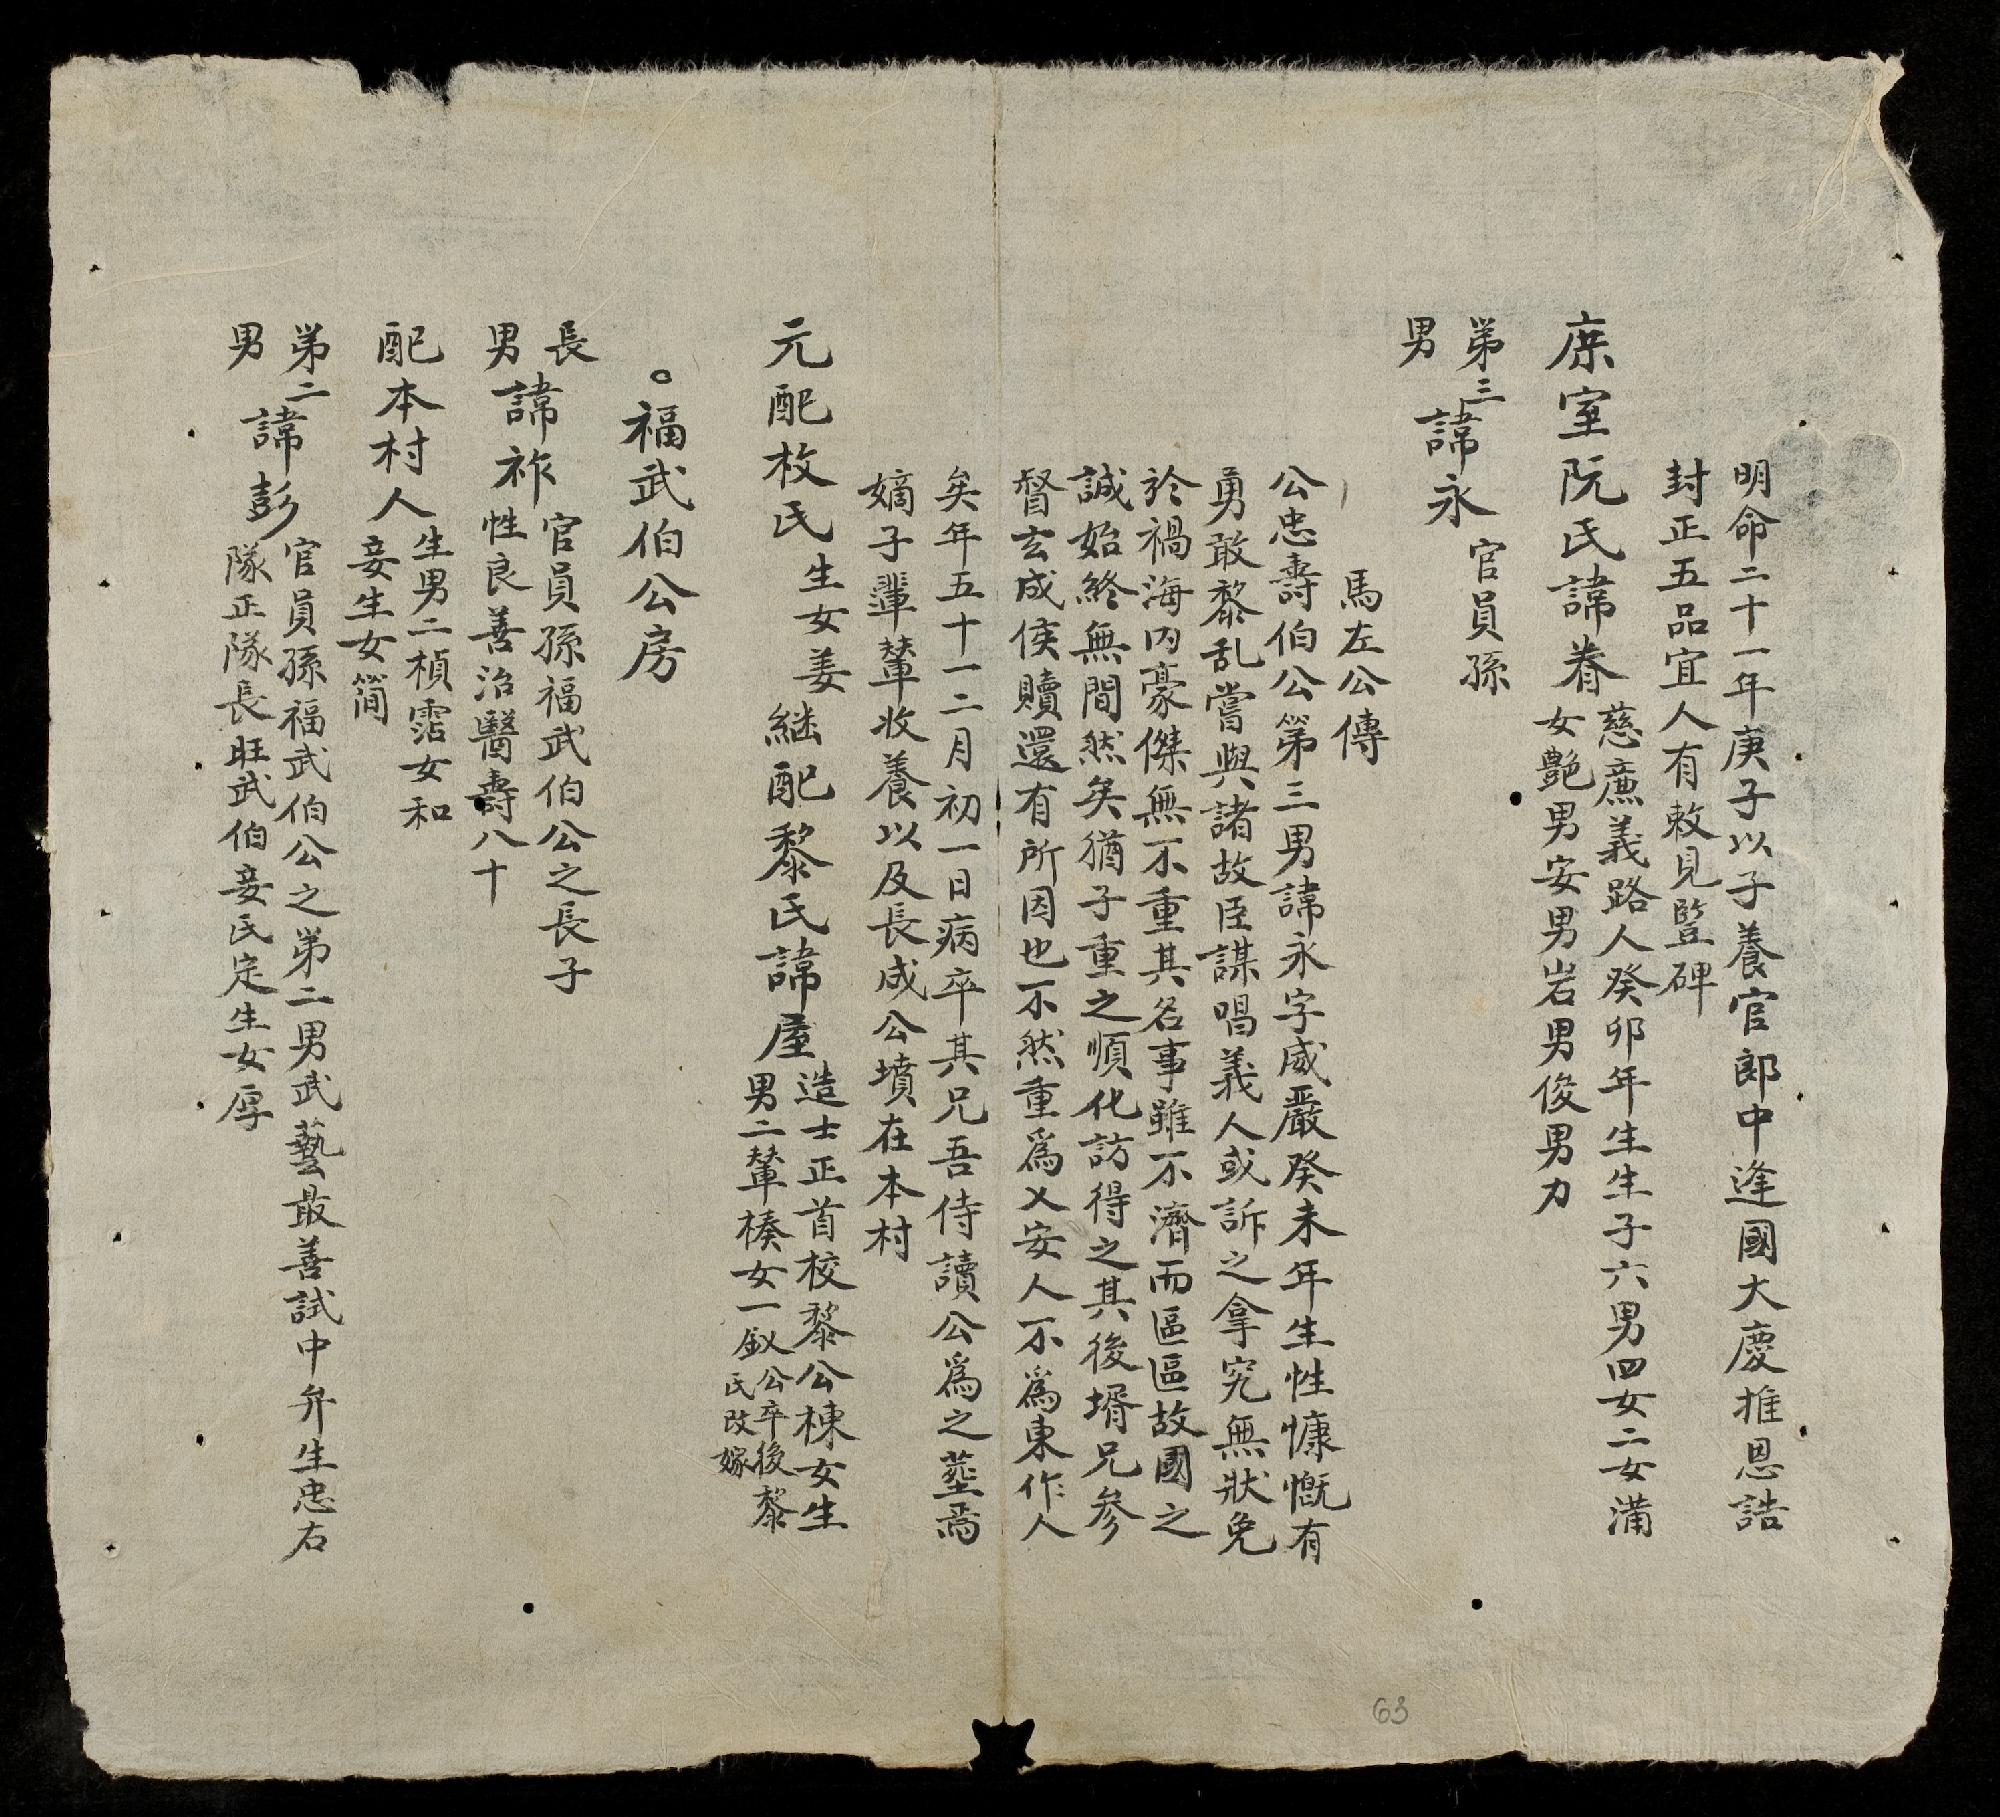 明命二十一年庚子以子養官郎中逢國大慶推恩誥
封正五品宜人有敕見竪碑
庶室阮氏諱眷
慈廉義路人癸卯年生生子六男四女二女蒲
女艶男安男岩男俊男力
第三男
諱永
官員孫
馬左公傳
公忠壽伯公第三男諱永字威嚴癸未年生性慷慨有
勇敢黎乱嘗與諸故臣謀唱義人或訴之拿究無狀免
於禍海内豪傑無不重其名事雖不濟而區區故國之
誠始終無間然矣猶子重之順化訪得之其後壻兄参
督玄成侯贖還有所因也不然重爲乂安人不爲東作人
矣年五十一二月初一日病卒其兄吾侍讀公爲之塟焉
嫡子輩輦收養以及長成公墳在本村
元配枚氏
生女姜
継配黎氏諱屋
造士正首校黎公棟女生
男二輦棲女一釵
公卒後黎
氏改嫁
。福武伯公房
長男
諱祚
官員孫福武伯公之長子
性良善治醫壽八十
配本村人
生男二楨霑女和
妾生女簡
第二男
諱彭
官員孫福武伯公之第二男武藝最善試中弁生忠右
隊正隊長旺武伯妾氏定生女厚
63